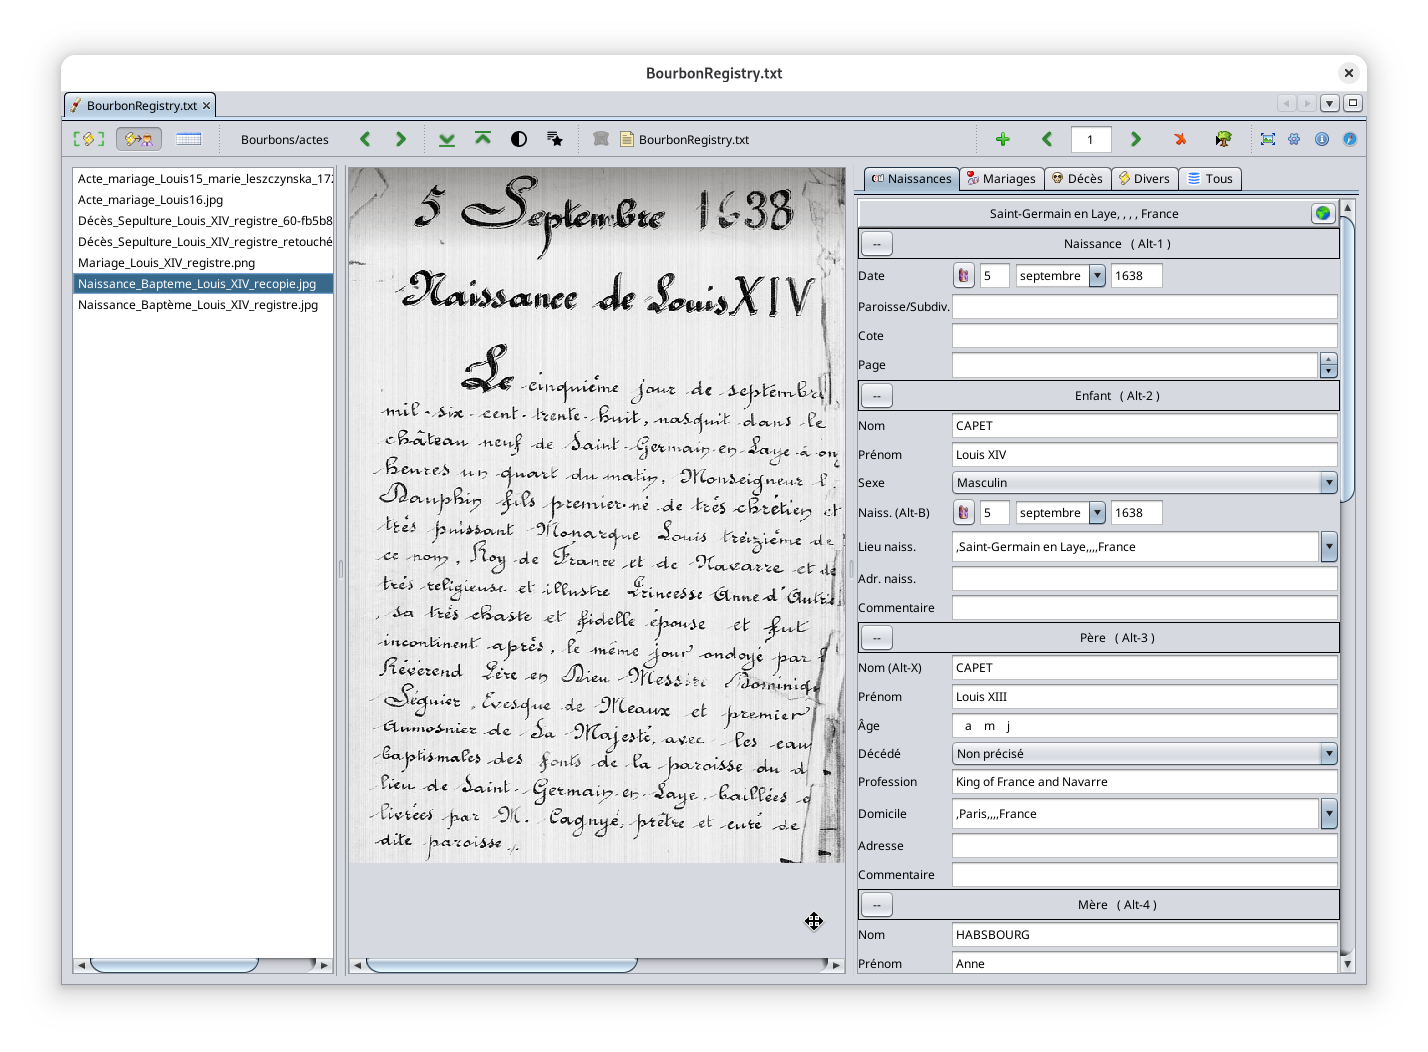 BourbonRegistry.txt
BourbonRegistry.txt
Bourbons/actes
BourbonRegistry.txt
1
Acte_mariage_Louis15_marie_leszczynska_172
Acte_mariage_Louis16.jpg
Décès_Sepulture_Louis_XIV_registre_60-fb5b8
Décès_Sepulture_Louis_XIV_registre_retouché
Mariage_Louis_XIV_registre.png
Naissance_Bapteme_Louis_XIV_recopie.jpg
Naissance_Baptème_Louis_XIV_registre.jpg
5 Septembre 1638
Naissance de Louis XIV
Le cinquiéme jour de septembre
mil-six-cent-trente-huit, nasquit dans le
château neuf de Saint-Germain-en-Laye à on
heures un quart du matin, Monseigneur l
Dauphin fils premier-né de trés chrétien et
trés puissant Monarque Louis treiziéme de
ce nom, Roy de France et de Navarre et de
trés religieuse et illustre Princesse Anne d'Autri
, sa trés chaste et fidelle épouse et fut
incontinent aprés, le méme jour ondoyé par l
Révérend Pére en Dieu Messire Dominiqu
Séguier, Evesque de Meaux et premier
Aumosnier de Sa Majesté, avec les eau
baptismales des fonts de la paroisse du d
lieu de Saint-Germain-en-Laye, baillées e
livrées par M. Cagnyé, prêtre et curé de
dite paroisse.
Naissances
Mariages
Décès
Divers
Tous
Saint-Germain en Laye, , , , France
-- Naissance ( Alt-1 )
Date 5 septembre 1638
Paroisse/Subdiv.
Cote
Page
-- Enfant ( Alt-2 )
Nom CAPET
Prénom Louis XIV
Sexe Masculin
Naiss. (Alt-B) 5 septembre 1638
Lieu naiss. ,Saint-Germain en Laye,,,,France
Adr. naiss.
Commentaire
-- Père ( Alt-3 )
Nom (Alt-X) CAPET
Prénom Louis XIII
Âge a m j
Décédé Non précisé
Profession King of France and Navarre
Domicile ,Paris,,,,France
Adresse
Commentaire
-- Mère ( Alt-4 )
Nom HABSBOURG
Prénom Anne